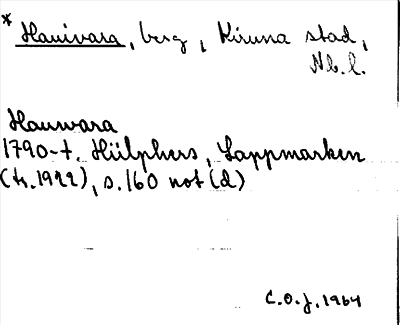 * Hauivara, berg, Kiruna stad,
Nb.l.
Hauivara
1790-t. Hülphers, Lappmarken
(tr. 1922), s. 160 not (d)
C.O.J. 1964